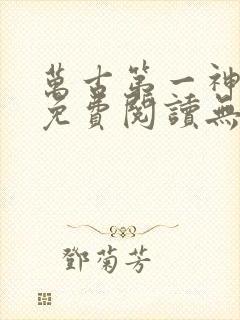 萬古第一神
免費閱讀無
鄧菊芳